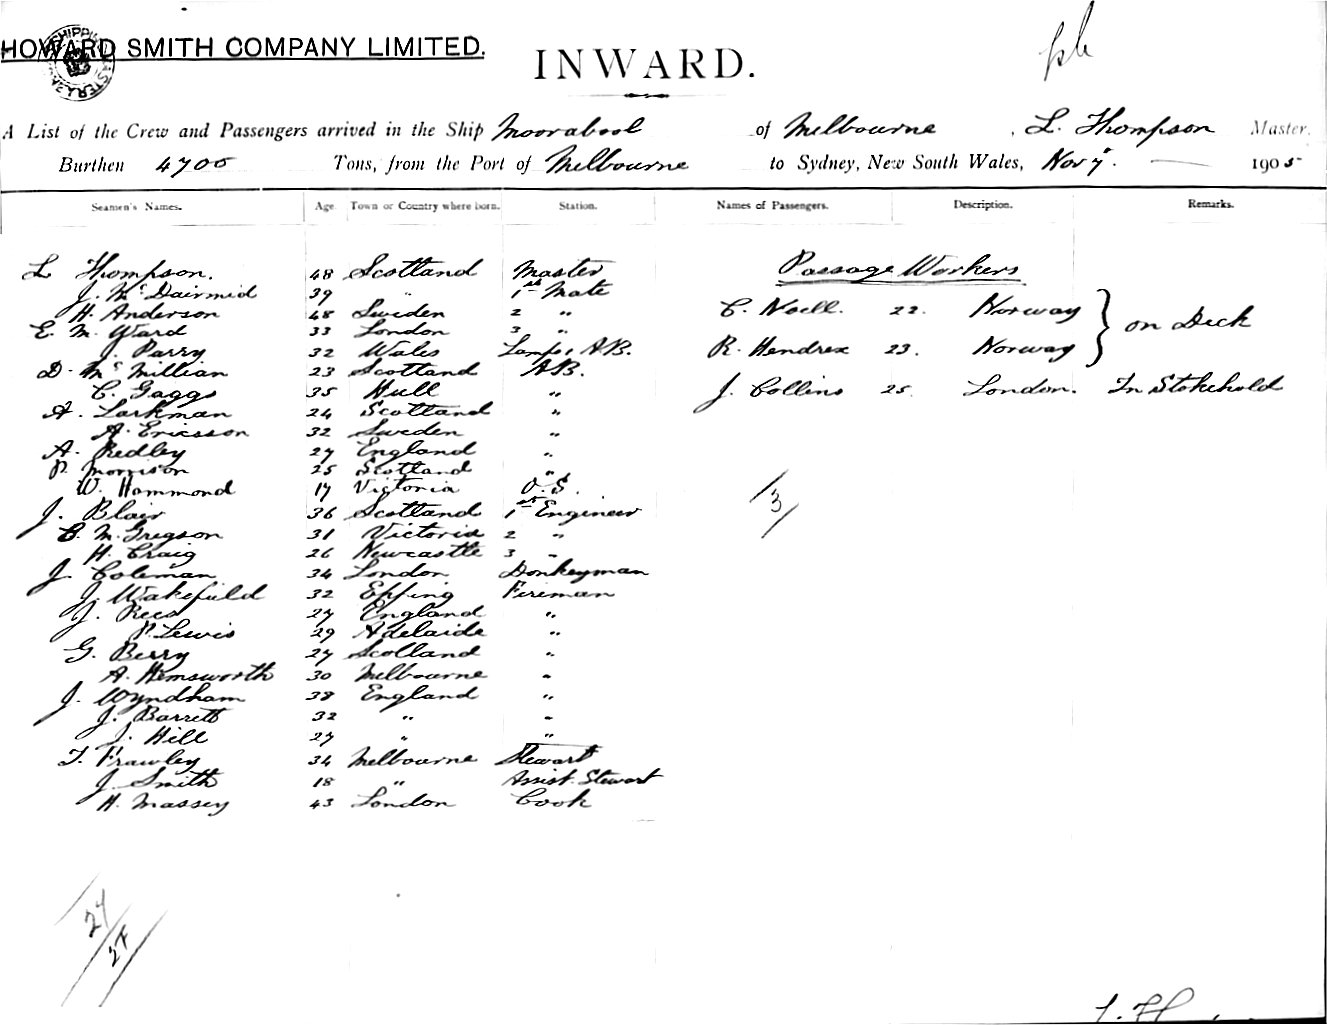 HOWARD SMITH COMPANY LIMITED.
INWARD.
A List of the Crew and Passengers arrived in the Ship Moorabool of Melbourne, L. Thompson Master,
Burthen 4700 Tons, from the Port of Melbourne to Sydney, New South Wales, Nov 7. 1905
Seamen's Names. Age Town or Country where born. Station. Names of Passengers. Description. Remarks.
L Thompson. 48 Scotland Master
J. McDairmid 39 " 1st Mate
H. Anderson 48 Sweden 2 "
E. M. Ward 33 London 3 "
J. Parry 32 Wales Lamps & AB.
D. McMillian 23 Scotland AB.
C. Gaggs 35 Hull "
A. Larkman 24 Scotland "
A. Ericsson 32 Sweden "
A. Redley 27 England "
P. Morrison 25 Scotland "
W. Hammond 17 Victoria O.S.
J. Blair 36 Scotland 1st Engineer
C. M. Gregson 31 Victoria 2 "
H. Craig 26 Newcastle 3 "
J. Coleman 34 London Donkeyman
J. Wakefield 32 Epping Fireman
J. Rees 27 England "
P. Lewis 29 Adelaide "
G. Berry 27 Scotland "
A. Hemsworth 30 Melbourne "
J. Wyndham 38 England "
J. Barrett 32 " "
J. Hill 27 " "
T. Frawley 34 Melbourne Stewart
J. Smith 18 " Assist. Stewart
H. Massey 43 London Cook
Passage Workers
C. Noell. 22. Norway
R. Hendrex 23. Norway
on Deck
J. Collins 25. London. In Stokehold
3
27
27